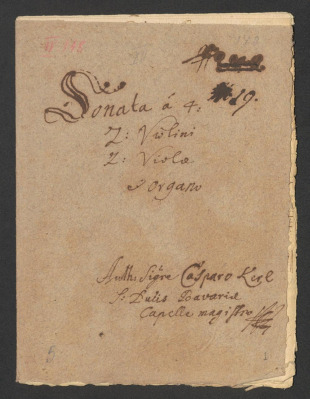 Sonata á 4:
19.
2: Violini
2: Viole
Organo
Auth: Sigre Casparo Kerl
S: Ducis Bavariæ
Capellæ magistro
1